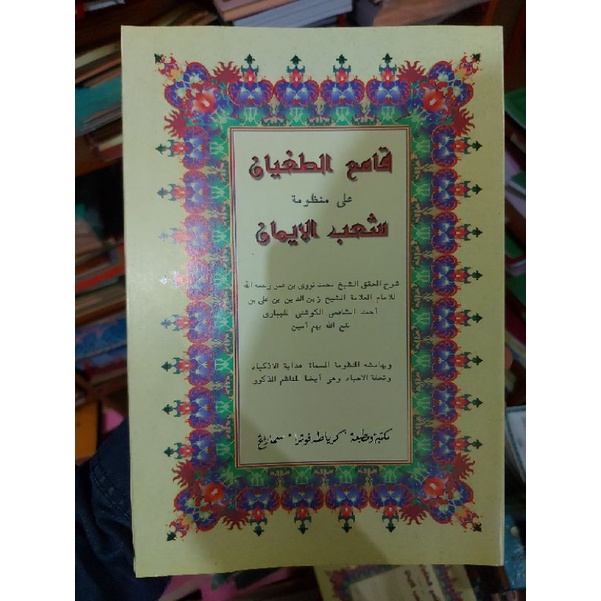 قامع الطغيان
على منظومة
شعب الإيمان
شرح المحقق الشيخ محمد نووى بن عمر رحمه الله
للامام العلامة الشيخ زين الدين بن على بن
أحمد الشافعى الكوشنى المليبارى
نفع الله بهم آمين
وبهامشه المنظومة المسماة هداية الاذكياء
وتحفة الاحباء وهى أيضا للناظم المذكور
مكتبة ومطبعة "كرياطه فوترا" سماراغ